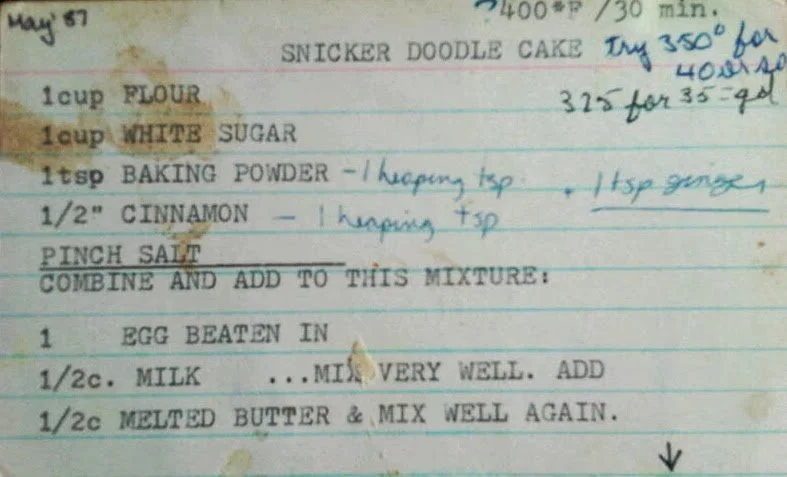 May '87
?400°F /30 min.
SNICKER DOODLE CAKE try 350° for
40 or so
325 for 35 = gd
1cup FLOUR
1cup WHITE SUGAR
1tsp BAKING POWDER - 1 heaping tsp . 1 tsp ginger
1/2" CINNAMON - 1 heaping tsp
PINCH SALT
COMBINE AND ADD TO THIS MIXTURE:
1 EGG BEATEN IN
1/2c. MILK ...MIX VERY WELL. ADD
1/2c MELTED BUTTER & MIX WELL AGAIN.
↓